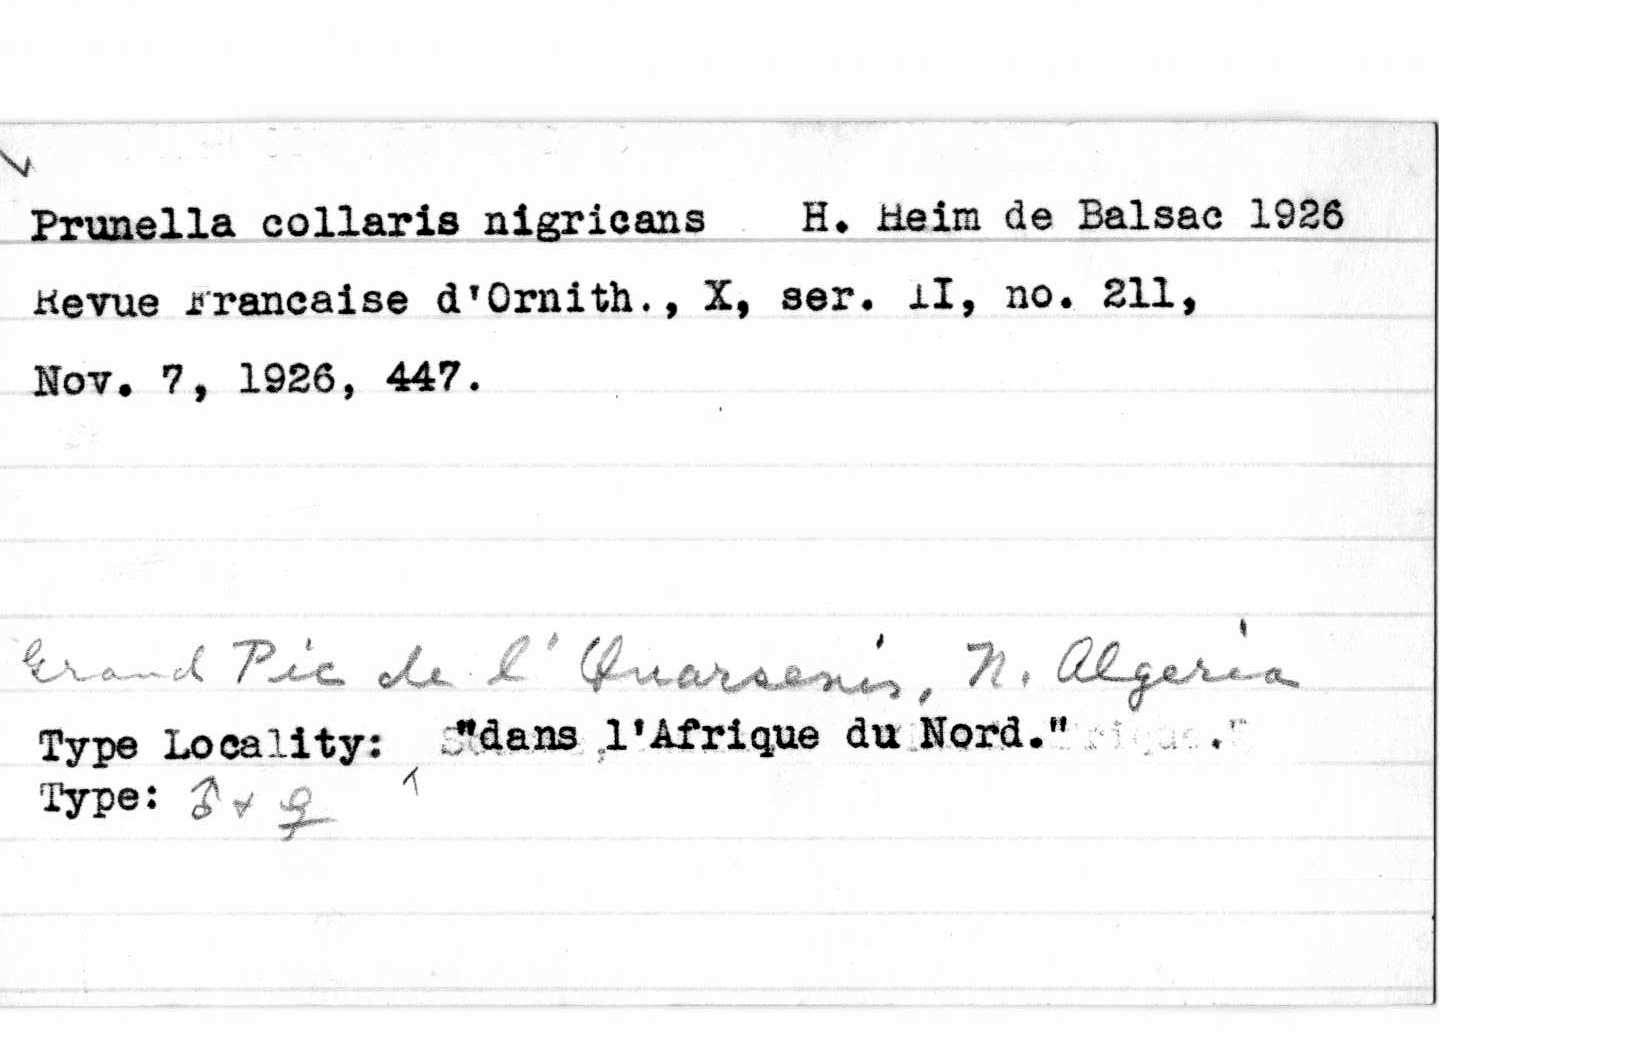 Prunella collaris nigricans H. Heim de Balsac 1926
Revue Francaise d'Ornith., X, ser. II, no. 211,
Nov. 7, 1926, 447.
Grand Pic de l'Ouarsenis, N. Algeria
Type Locality: "dans l'Afrique du Nord."
Type: ♂ + ♀